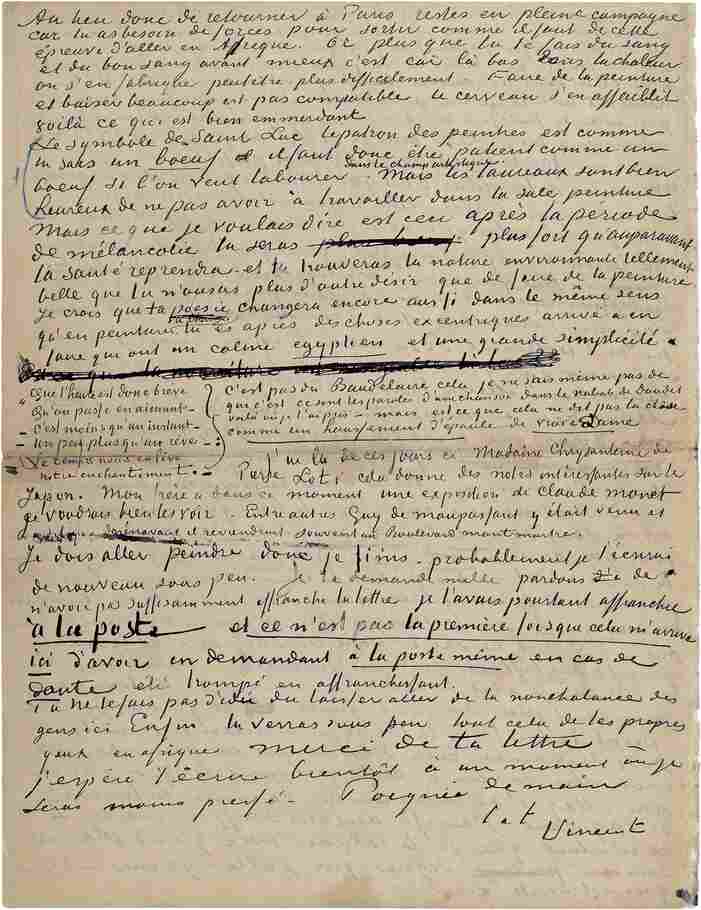 Au lieu donc de retourner à Paris restes en pleine campagne
car tu as besoin de forces pour sortir comme il faut de cette
épreuve d'aller en Afrique. Or plus que tu te fais du sang
et du bon sang avant mieux c'est car là bas dans la chaleur
on s'en fabrique peutêtre plus difficilement. Faire de la peinture
et baiser beaucoup est pas compatible le cerveau s'en affaiblit
Voilà ce qui est bien emmerdant
Le symbole de Saint Luc le patron des peintres est comme
tu sais un boeuf il faut donc être patient comme un
boeuf si l'on veut labourer dans le champ artistique. Mais les taureaux sont bien
heureux de ne pas avoir à travailler dans la sale peinture
Mais ce que je voulais dire est ceci après la période
de mélancolie tu seras plus fort qu'auparavant
la santé reprendra – et tu trouveras la nature environnante tellement
belle que tu n'auras plus d'autre désir que de faire de la peinture
Je crois que ta poesie changera encore aussi dans le même sens
qu'en peinture tu es après des choses excentriques arrivé à en
faire qui ont un calme egyptien et une grande simplicité.
"Que l'heure est donc brève
Qu'on passe en aimant –
– C'est moins qu'un instant –
– Un peu plus qu'un rêve –
Le temps nous enlève
notre enchantement. –
c'est pas du Baudelaire cela je ne sais même pas de
qui c'est ce sont les paroles d'une chanson dans le nabab de Daudet
voilà où je l'ai pris – mais est ce que cela ne dit pas la chôse
comme un haussement d'épaule de vraie Dame
J'ai lu de ces jours ci Madame Chrysantème de
Loti cela donne des notes intéressantes sur le
Japon. Mon frère a dans ce moment une exposition de Claude Monet
je voudrais bien les voir. Entre autres Guy de Maupassant y était venu et
a dit que dorénavant il reviendrait souvent au Boulevard Montmartre.
Je dois aller peindre donc je finis – probablement je t'écrirai
de nouveau sous peu. Je te demande mille pardons de
n'avoir pas suffisamment affranchi la lettre je l'avais pourtant affranchie
à la poste et ce n'est pas la première fois que cela m'arrive
ici d'avoir en demandant à la poste même en cas de
doute été trompé en affranchissant.
Tu ne te fais pas d'idée du laisser aller de la nonchalance des
gens ici Enfin tu verras sous peu tout cela de tes propres
yeux en afrique merci de ta lettre
j'espère t'écrire bientôt à un moment où je
serai moins pressé – Poignée de main
t. à t.
Vincent